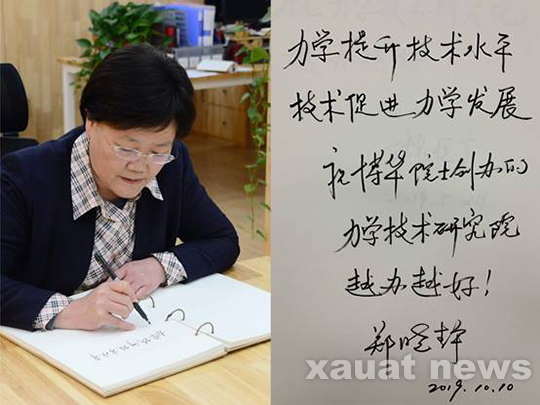 力学提升技术水平
技术促进力学发展
祝博华院士创办的
力学技术研究院
越办越好！
郑晓静
2019.10.10
xauat news